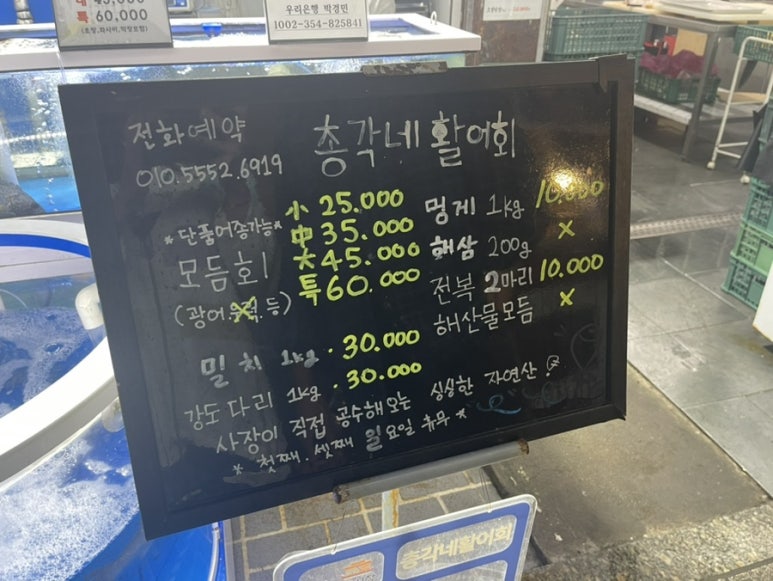 특 60,000
우리은행 박경민
1002-354-825841
전화예약
010.5552.6919
총각네 활어회
*단품어종가능*
모듬회
(광어.우럭.등)
小 25.000
中 35.000
大 45.000
특 60.000
멍게 1kg 10.000
해삼 200g x
전복 2마리 10.000
해산물모듬 x
밀치 1kg · 30.000
강도다리 1kg · 30.000
사장이 직접 공수해오는 싱싱한 자연산
* 첫째. 셋째 일요일 휴무 *
총각네활어회